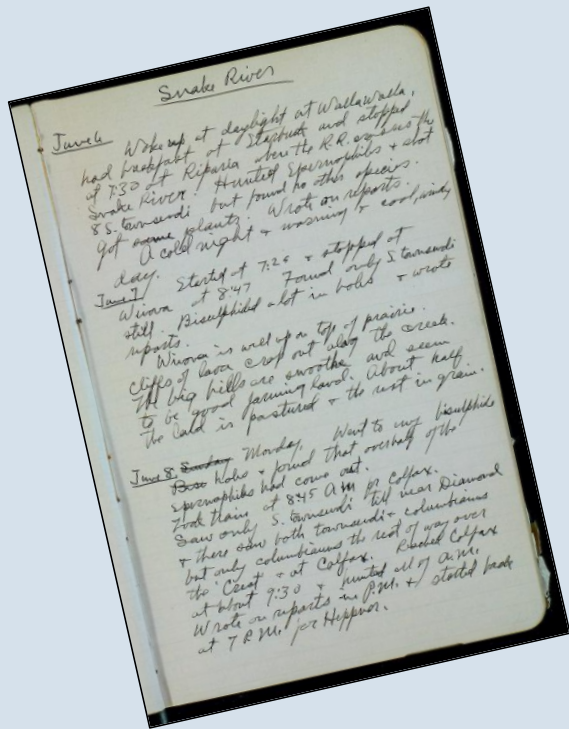 Snake River
June 6 Woke up at daylight at Walla Walla,
had breakfast at Starbuck and stopped
at 7:30 at Riparia where the R.R. crosses the
Snake River. Hunted Spermophiles + shot
8 S. townsendi but found no other species.
Got some plants. Wrote on reports.
A cold night + morning + cool, windy
day.
June 7 Started at 7:20 + stopped at
Winona at 8:47 Found only S townsendi
still. Bisulphided a lot in holes + wrote
reports.
Winona is well up on top of prairie.
Cliffs of lava crop out along the creek.
The big hills are smoothe and seem
to be good farming land. About half
the land is pastured + the rest in grain.
June 8 Sunday Monday. Went to my bisulphide
holes + found that over half of the
spermophiles had come out.
Took train at 8:45 A.M. for Colfax.
Saw only S. townsendi till near Diamond
+ there saw both townsendi + columbianus
but only columbianus the rest of way over
the crest + at Colfax. Reached Colfax
at about 9:30 + hunted all of A.M.
Wrote on reports in P.M. + started back
at 7 P.M. for Heppner.